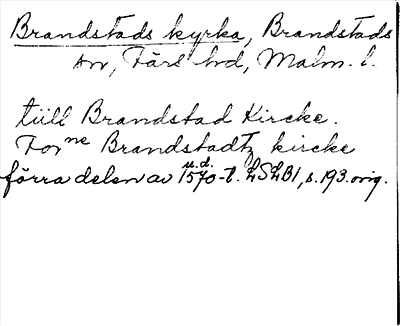 Brandstads kyrka, Brandstads
sn, Färs hd, Malm. l.
tiill Brandstad Kircke.
For ne Brandstadtz kircke
u.d.
förra delen av 1570-t. LSLB1, s. 193. orig.